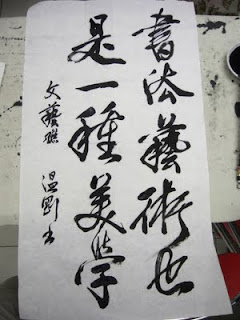 書法藝術也
是一種美学
文藝礁 温劉書